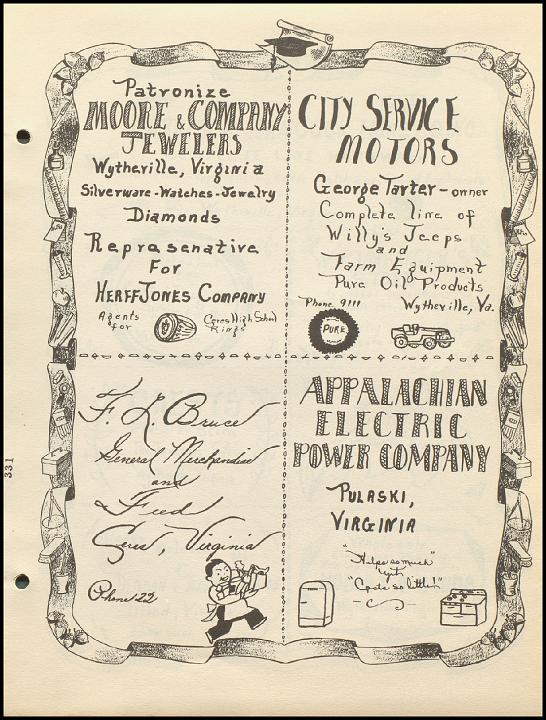 Patronize
MOORE & COMPANY
JEWELERS
Wytheville, Virginia
Silverware-Watches-Jewelry
Diamonds
Reprasenative
For
HERFF JONES COMPANY
Agents
for
Ceres High School
Rings
CITY SERVICE
MOTORS
George Tarter - owner
Complete line of
Willy's Jeeps
and
Farm Equipment
Pure Oil Products
Phone 9111
Wytheville, Va.
PURE
F. L. Bruce
General Merchandise
and
Feed
Ceres, Virginia
Phone 122
APPALACHIAN
ELECTRIC
POWER COMPANY
PULASKI,
VIRGINIA
"Helps so much"
yet
"Costs so little!"
331